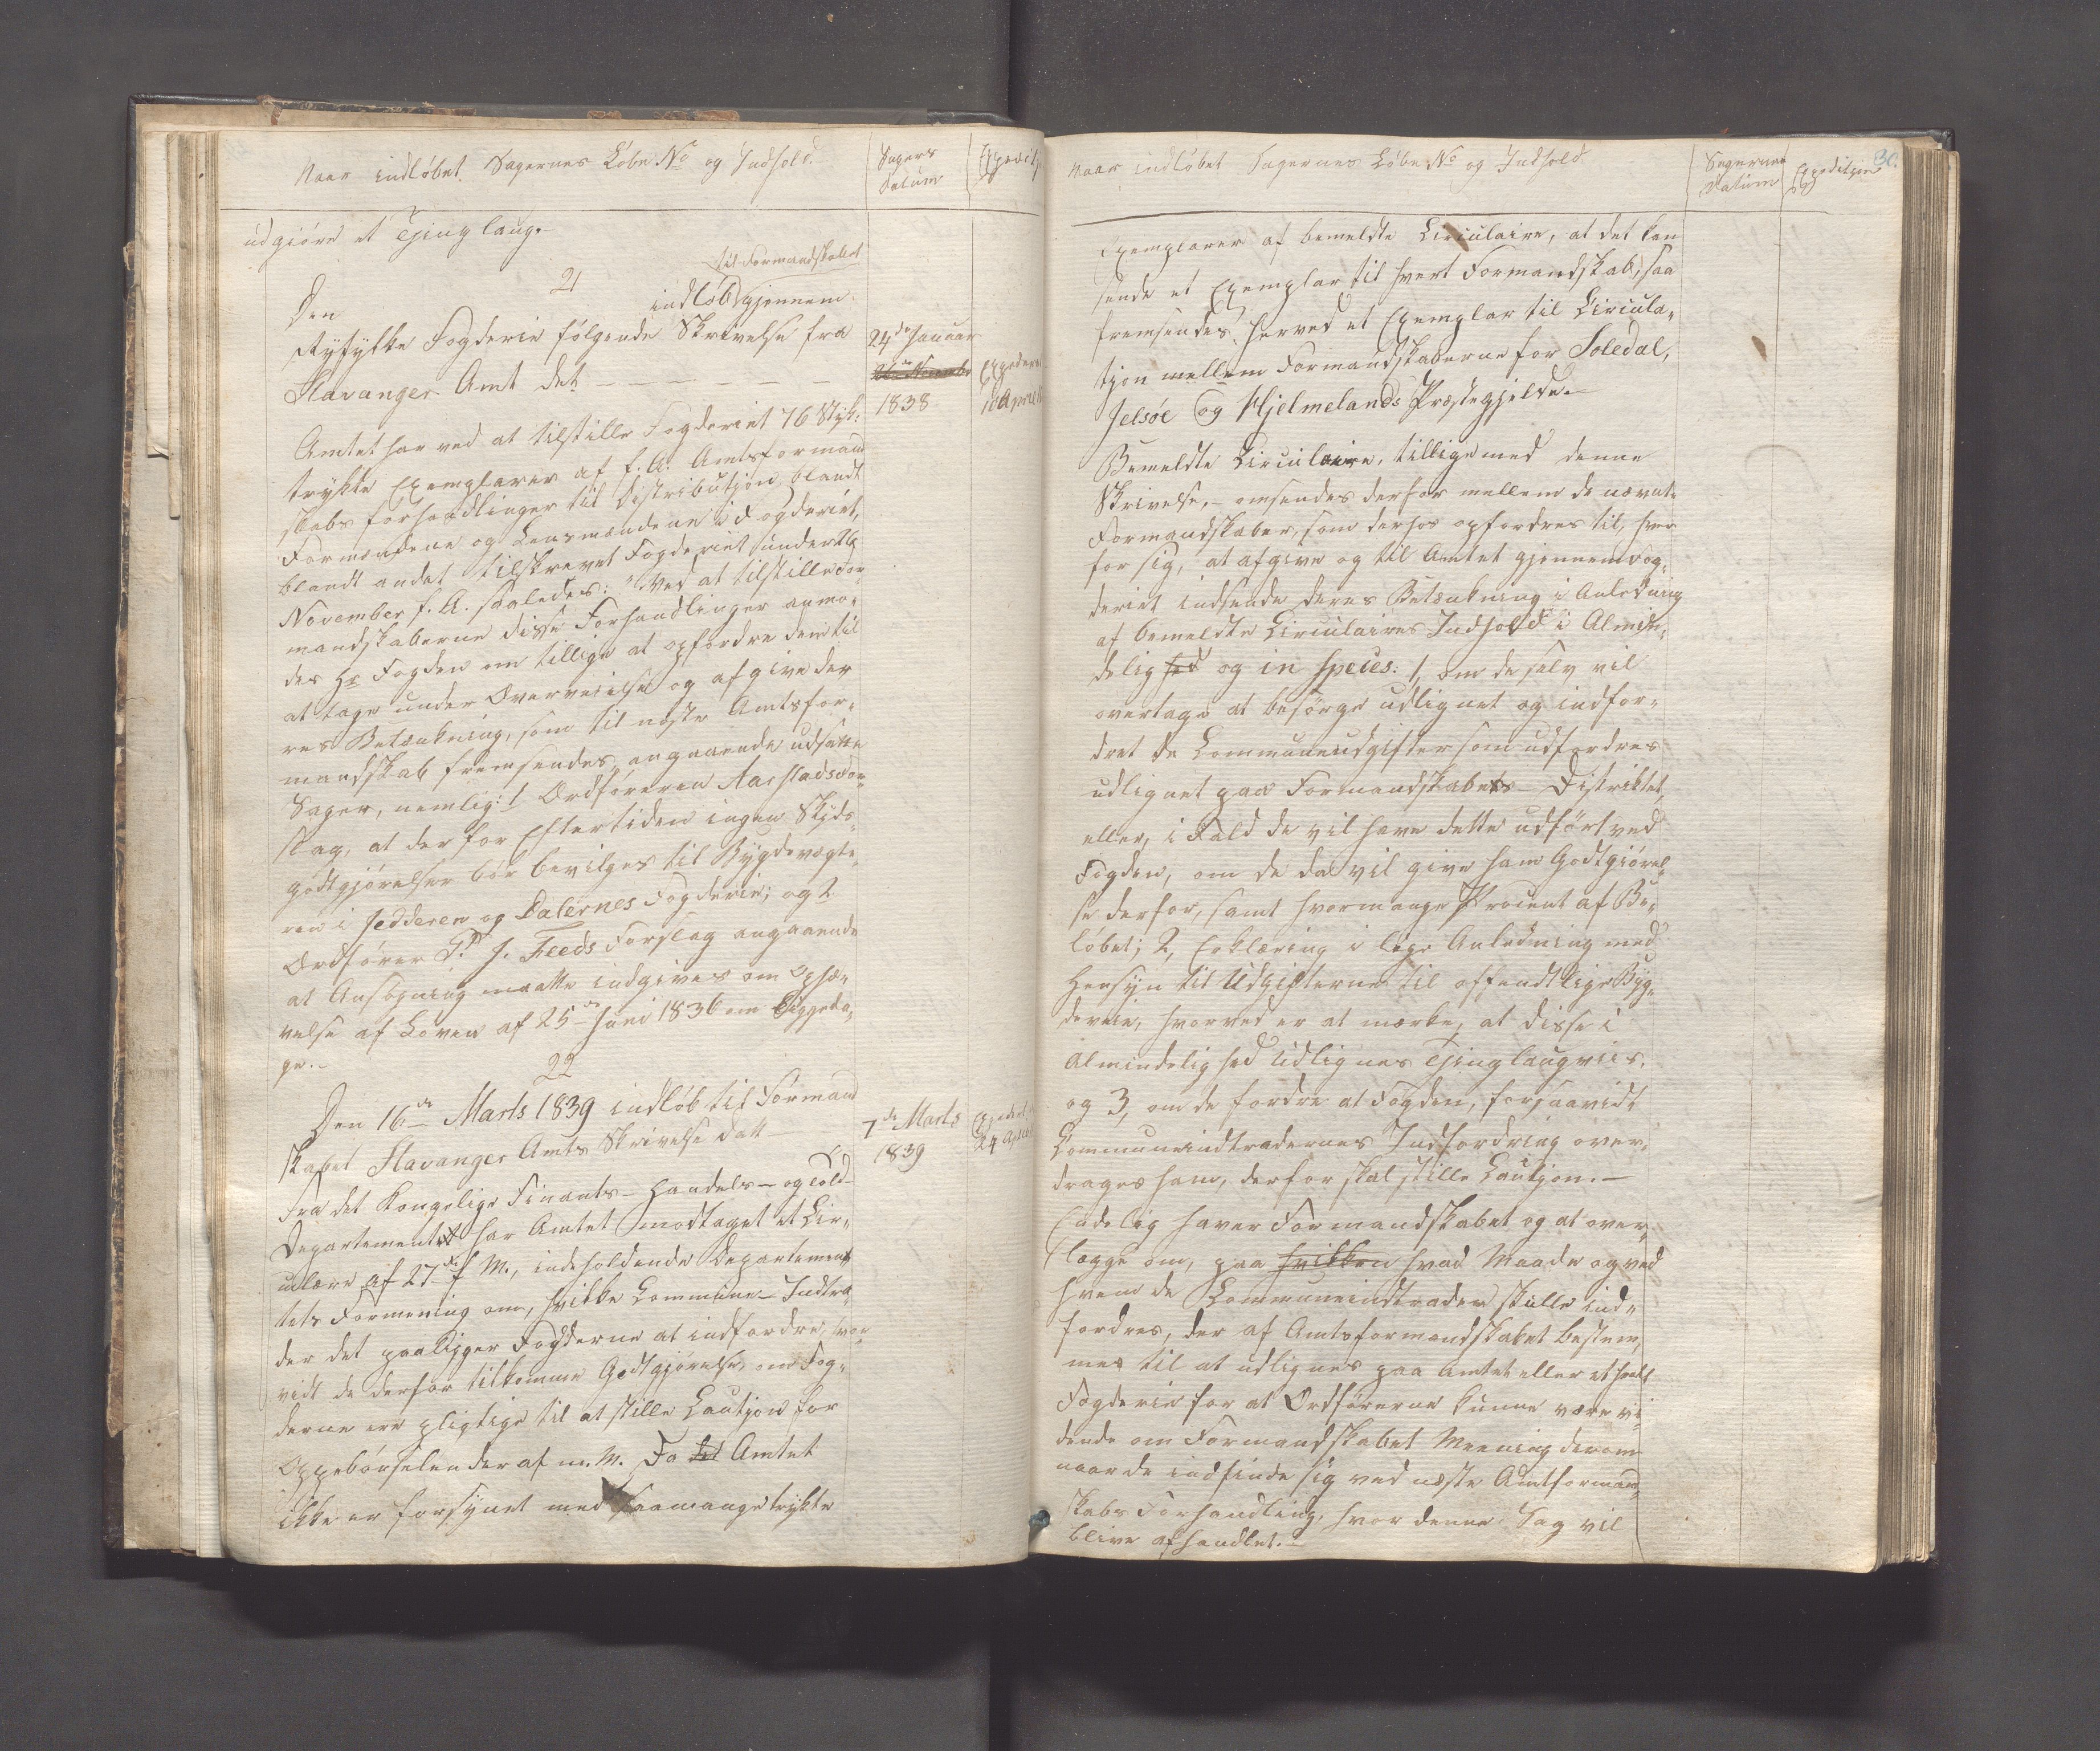 Naar indløbet Sagernes Löbe No og Indhold.
Sagers
Datum
udgiøre et Tjinglaug.
21
til Formandskabet
Den indløb gjennem
Ryfylke Fogderie følgende Skrivelse fra
Stavanger Amt det
24de Januar
1838
Expederet
10 April
Amtet har ved at tilstille Fogderiet 76 Styk:
trykte Exemplarer af f. A. Amtsformand
skabs forhandlinger til Distribution blandt
Formændene og Lensmændene i Fogderiet,
blandt andet tilskrevet Fogderiet under
November f. A. saaledes: "Ved at tilstille For-
mandskaberne disse Forhandlinger anmo-
des Hr Fogden om tillige at opfordre dem til
at tage under Overveielse og afgive der
res Betænkning, som til næste Amtsfor-
mandskab fremsendes, angaaende udsatte
Sager, nemlig: 1 Ordføreren Aarstads For-
slag, at der for Eftertiden ingen Skyds-
godtgjørelser bör bevilges til Bygdevægte-
ren i Jedderen og Dalernes Fogderie; og 2
Ordfører J. Feeds Forslag angaaende
at Ansögning maatte indgives om Ophæ-
velse af Loven af 25de Juni 1836 om Liggeda-
ge.-
22
Den 16de Marts 1839 indløb til Formand
skabet Stavanger Amts Skrivelse dat
7de Marts
1839
24 April
Fra det Kongelige Finants- Handels- og Told-
Departementet har Amtet modtaget et Cir-
culære af 27de f. M., indeholdende Departemen
tets Formening om, hvilke Commune-Indtra-
der det paaligger Fogderne at indfordre, hvor
vidt de derfor tilkomme Godtgjørelse, om Fog-
derne ere pligtige til at stille Caution for
Oppebørselen deraf m. M. Da det Amtet
ikke er forsynet med saamange trykte
Naar indløbet Sagernes Löbe No og Indhold
Sagernes
Datum
Expedition
30.
Exemplarer af bemeldte Circulaire, at det kan
sende et Exemplar til hvert Formandskab, saa
fremsendes herved et Exemplar til Circula-
tjon mellem Formandskaberne for Soledal,
Jelsöe og Hjelmelands Præstegjelde.
Bemeldte Circulaire, tilligemed denne
Skrivelse,- omsendes derfor mellem de nævnte
Formandskaber, som derhos opfordres til, hver
for sig, at afgive og til Amtet gjennem Fog-
deriet indsende deres Betænkning i Anledning
af bemeldte Circulaires Indhold i Almin-
delig hed og in specis: 1, om de selv vil
overtage at besörge udlignet og indfor-
dret de Communeudgifter som udfordres
udlignet paa Formandskabets Distriktet,
eller, i Fald de vil have dette udført ved
Fogden, om de da vil give ham Godtgiörel-
se derfor, samt hvormange Procent af Be-
löbet; 2, Erklæring i lige Anledning med
Hensyn til Udgifterne til offendtlige Byg-
deveie, hvorved er at mærke, at disse i
Almindelighed Udlignes Tjinglaugviis.
og 3, om de fordre at Fogden, forsaavidt
Communeindtradernes Indfordring over-
drages ham, derfor skal stille Cautjon.-
Endelig haver Formandskabet og at over-
lægge om, paa hvilken hvad Maade og ved
hvem de Communeindtrader skulle ind-
fordres, der af Amtsformandskabet bestem-
mes til at udlignes paa Amtet eller et heelt
Fogderie for at Ordförerne kunne være vi-
dende om Formandskabet Meening derom
naar de indfinde sig ved næste Amtsformand-
skabs Forhandling, hvor denne Sag vil
blive afhandlet.-